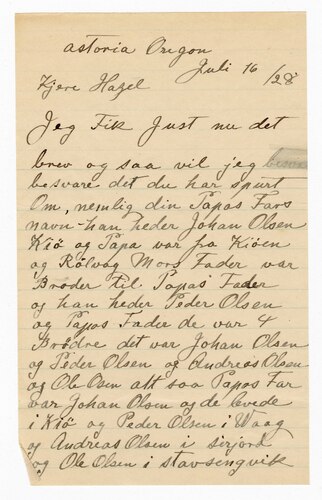 Astoria Oregon
Juli 16 /28
Kjere Hazel
Jeg Fik Just nu det
brev og saa vil jeg
besvare det du har spurt
Om, nemlig din Papas Fars
navn han heder Johan Olsen
Kiö og Papa var fra Kiöen
og Rölvag Mors Fader var
Broder til Papas Fader
og han heder Peder Olsen
og Papas Fader de var 4
Brödre det var Johan Olsen
og Peder Olsen og Andreas Olsen
og Ole Osen alt saa Papas Far
var Johan Olsen og de levede
i Kiö og Peder Olsen i Waag
og Andreas Olsen i serjord
og Ole Olsen i stavsengvik